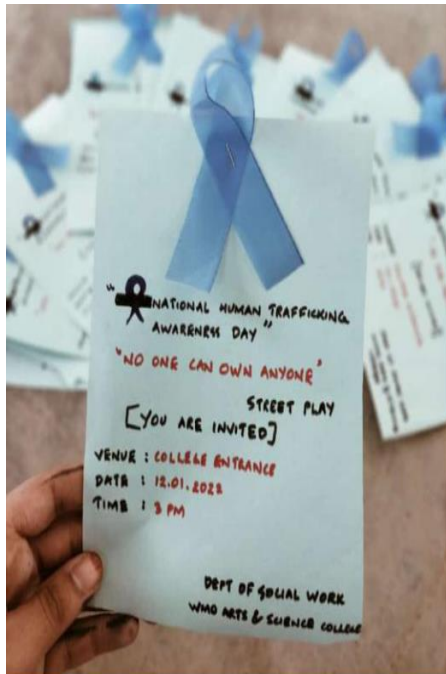 "NATIONAL HUMAN TRAFFICKING
AWARENESS DAY"
"NO ONE CAN OWN ANYONE"
STREET PLAY
[YOU ARE INVITED]
VENUE : COLLEGE ENTRANCE
DATE : 12.01.2023
TIME : 3 PM
DEPT OF SOCIAL WORK
WMO ARTS & SCIENCE COLLEGE